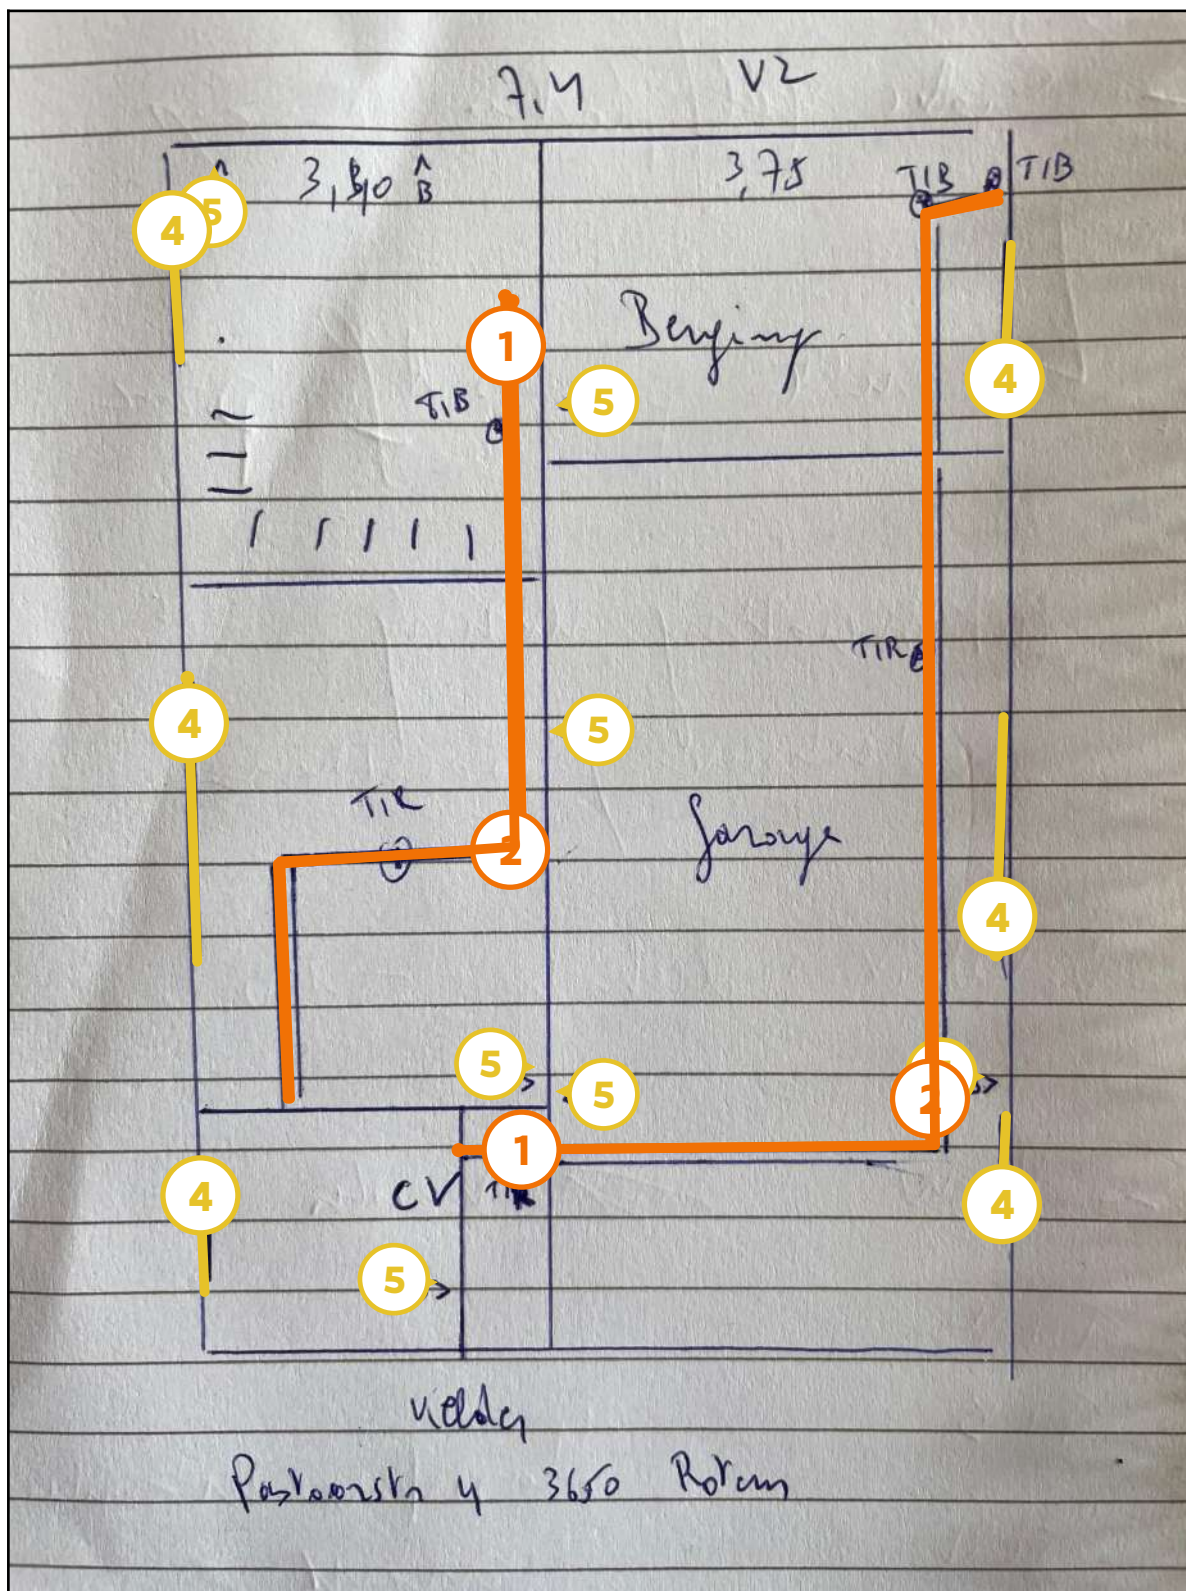 7,4 V2
3,50 B 3,75 T1B T1B
4 5
1 Berging
4
T1B 5
T1R
4 5
T1R Garage
2
4
5 5
2
1
4 CV T1R 4
5
Kelder
Pastoorstr 4 3650 Rotem